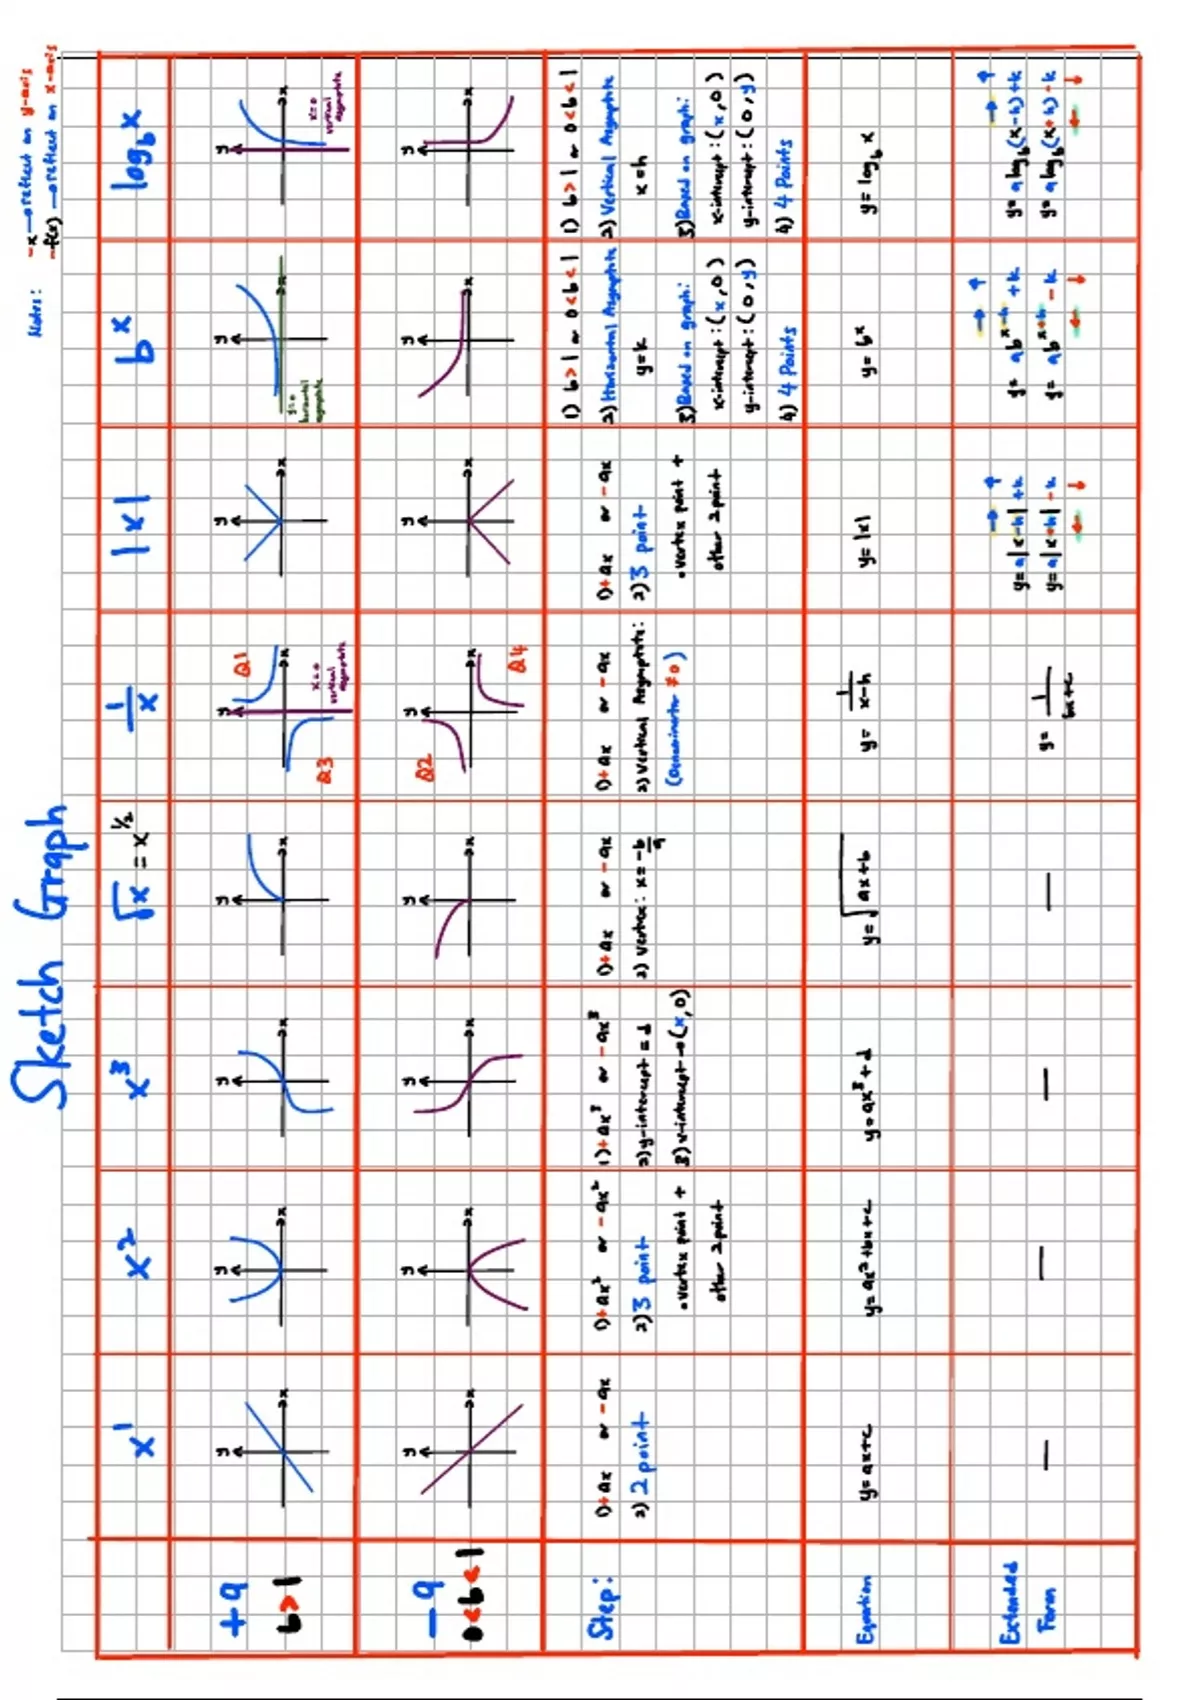 Sketch Graph
Notes: -x → reflect on y-axis
-f(x) → reflect on x-axis
x¹ x² x³ √x = x^½ 1/x |x| b^x log_b x
+a
b>1
y x
y x
y x
y x
y x Q1 Q3 x=0 vertical asymptote
y x
y x y=0 horizontal asymptote
y x x=0 vertical asymptote
-a
0<b<1
y x
y x
y x
y x
y x Q2 Q4
y x
y x
y x
Step:
1) +ax or -ax
2) 2 point
1) +ax² or -ax²
2) 3 point
• vertex point +
other 2 point
1) +ax³ or -ax³
2) y-intercept = d
3) x-intercept → (x, 0)
1) +ax or -ax
2) Vertex: x = -b/a
1) +ax or -ax
2) Vertical Asymptote:
(Denominator ≠ 0)
1) +ax or -ax
2) 3 point
• vertex point +
other 2 point
1) b>1 or 0<b<1
2) Horizontal Asymptote
y=k
3) Based on graph:
x-intercept: (x, 0)
y-intercept: (0, y)
4) 4 Points
1) b>1 or 0<b<1
2) Vertical Asymptote
x=h
3) Based on graph:
x-intercept: (x, 0)
y-intercept: (0, y)
4) 4 Points
Equation
y=ax+c
y=ax²+bx+c
y=ax³+d
y=√ax+b
y= 1/x-h
y=|x|
y=b^x
y=log_b x
Extended
Form
—
—
—
—
y= 1/bx+c
→ ↑
y=a|x-h|+k
y=a|x+h|-k
← ↓
→ ↑
y= ab^x-h +k
y= ab^x+h -k
← ↓
→ ↑
y= a log_b (x-h)+k
y= a log_b (x+h)-k
← ↓